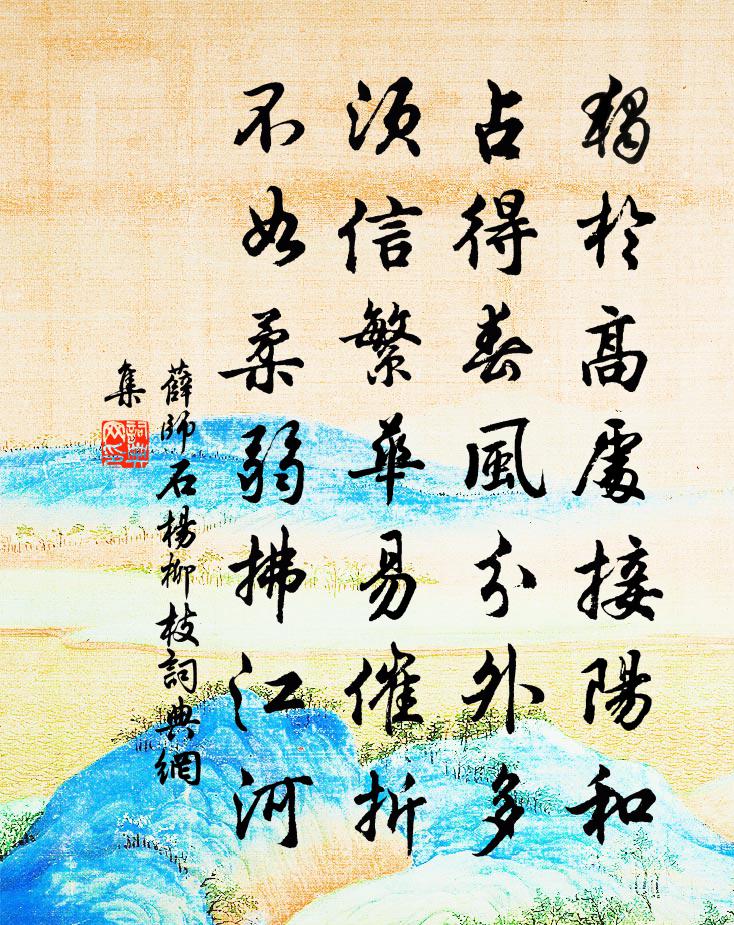 獨於高處接陽和
占得春風分外多
須信繁華易催折
不如柔弱拂江河
薛師石楊柳枝詞典網
集